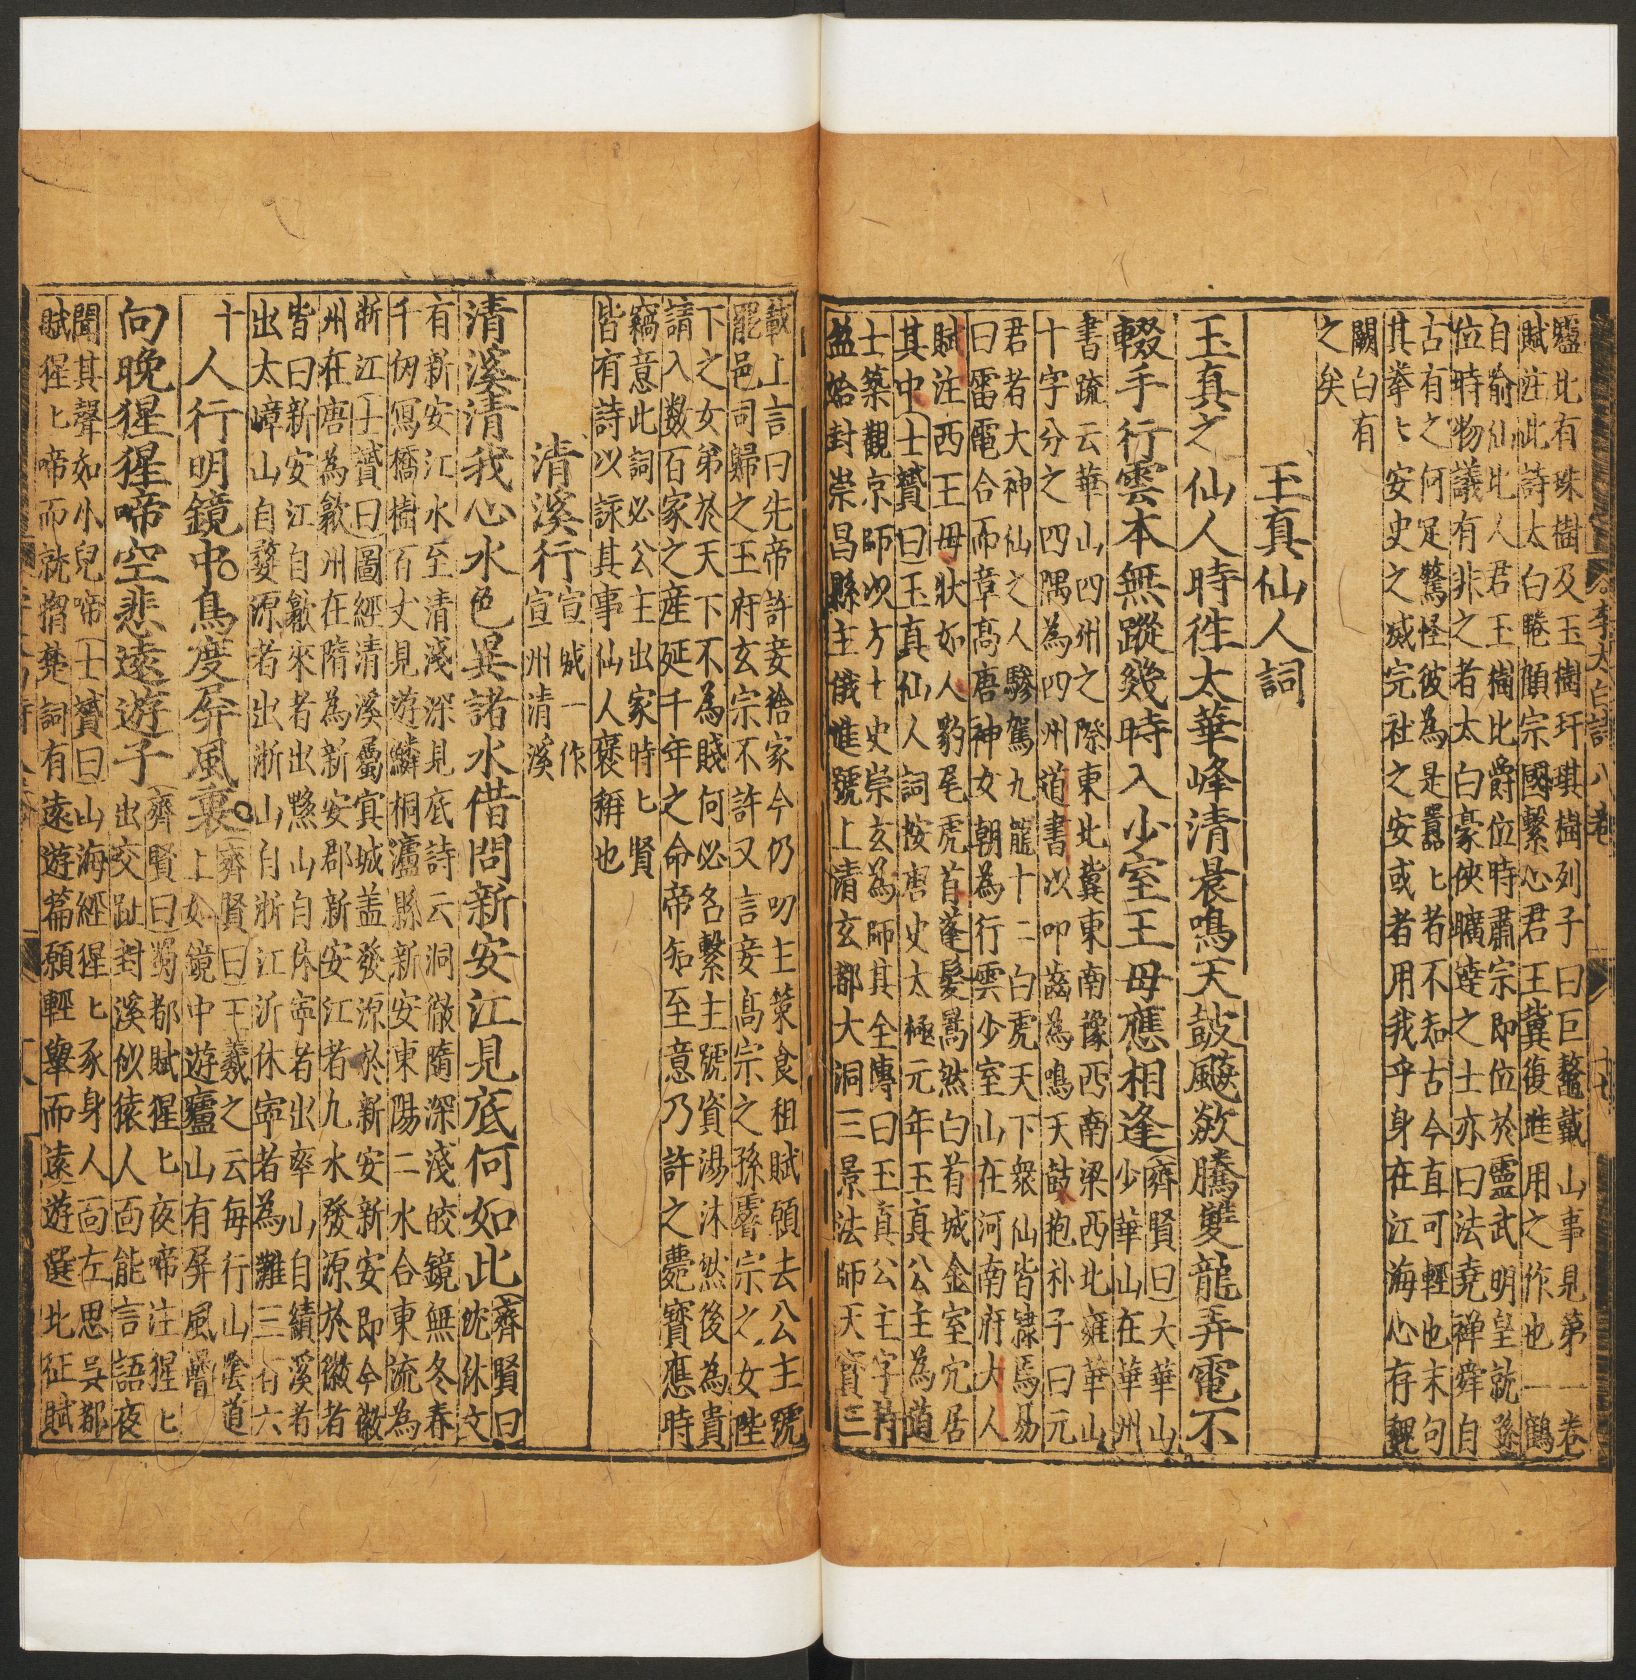 壚比有珠樹及玉樹玕琪樹列子曰巨鼇戴山事見第一卷
賦註此詩太白睠顧宗國繫心君王冀復進用之作也一鶴
自喻仙比人君玉樹比爵位時肅宗即位於靈武明皇就遜
位時物議有非之者太白豪俠曠達之士亦曰法堯禪舜自
古有之何足驚怪彼為是嚚匕者不知古今直可輕也末句
其拳匕安史之滅完社之安或者用我乎身在江海心存魏
闕白有
之矣
玉真仙人詞
玉真之仙人時徃太華峰清晨鳴天鼓飈欻騰雙龍弄電不
輟手行雲本無蹤幾時入少室王母應相逢
齊賢曰大華山
少華山在華州
書疏云華山四州之際東北冀東南豫西南梁西北雍華山
十字分之四隅為四州道書以叩齒為鳴天鼓抱朴子曰元
君者大神仙之人驂駕九龍十二白虎天下衆仙皆隸焉易
曰雷電合而章高唐神女朝為行雲少室山在河南府大人
賦注西王母狀如人豹尾虎首蓬髮暠然白首城金室穴居
其中士贇曰玉真仙人詞按唐史太極元年玉真公主為道
士築觀京師以方士史崇玄為師其全傳曰玉真公主字持
盈始封崇昌縣主俄進號上清玄都大洞三景法師天寶三
載上言曰先帝許妾捨家今仍叨主第食租賦願去公主號
罷邑司歸之王府玄宗不許又言妾高宗之孫睿宗之女陛
下之女弟於天下不為賤何必名繫主號資湯沐然後為貴
請入数百家之産延千年之命帝知至意乃許之薨寶應時
竊意此詞必公主出家時匕賢
皆有詩以詠其事仙人褒稱也
清溪行
宣城一作
宣州清溪
清溪清我心水色異諸水借問新安江見底何如此
齊賢曰
沈休文
有新安江水至清淺深見底詩云洞徹隨深淺皎鏡無冬春
千仞寫橋樹百丈見遊鱗桐瀘縣新安東陽二水合東流為
浙江士贇曰圖經清溪屬宣城盖發源於新安新安即今徽
州在唐為歙州在隋為新安郡新安江者九水發源於徽者
皆曰新安江自歙來者出黟山自休寧者出率山自績溪者
出太嶂山自婺源者出浙山自浙江沂休寧者為灘三百六
十人行明鏡中鳥度屏風裏
齊賢曰王羲之云每行山陰道
上如鏡中遊廬山有屏風疊
向晚猩猩啼空悲遠遊子
齊賢曰蜀都賦猩匕夜啼注猩匕
出交趾封溪似猿人面能言語夜
聞其聲如小兒啼士贇曰山海經猩匕豕身人面左思吳都
賦猩匕啼而就擒楚詞有遠遊篇願輕舉而遠遊選北征賦
李太白詩八卷
十七